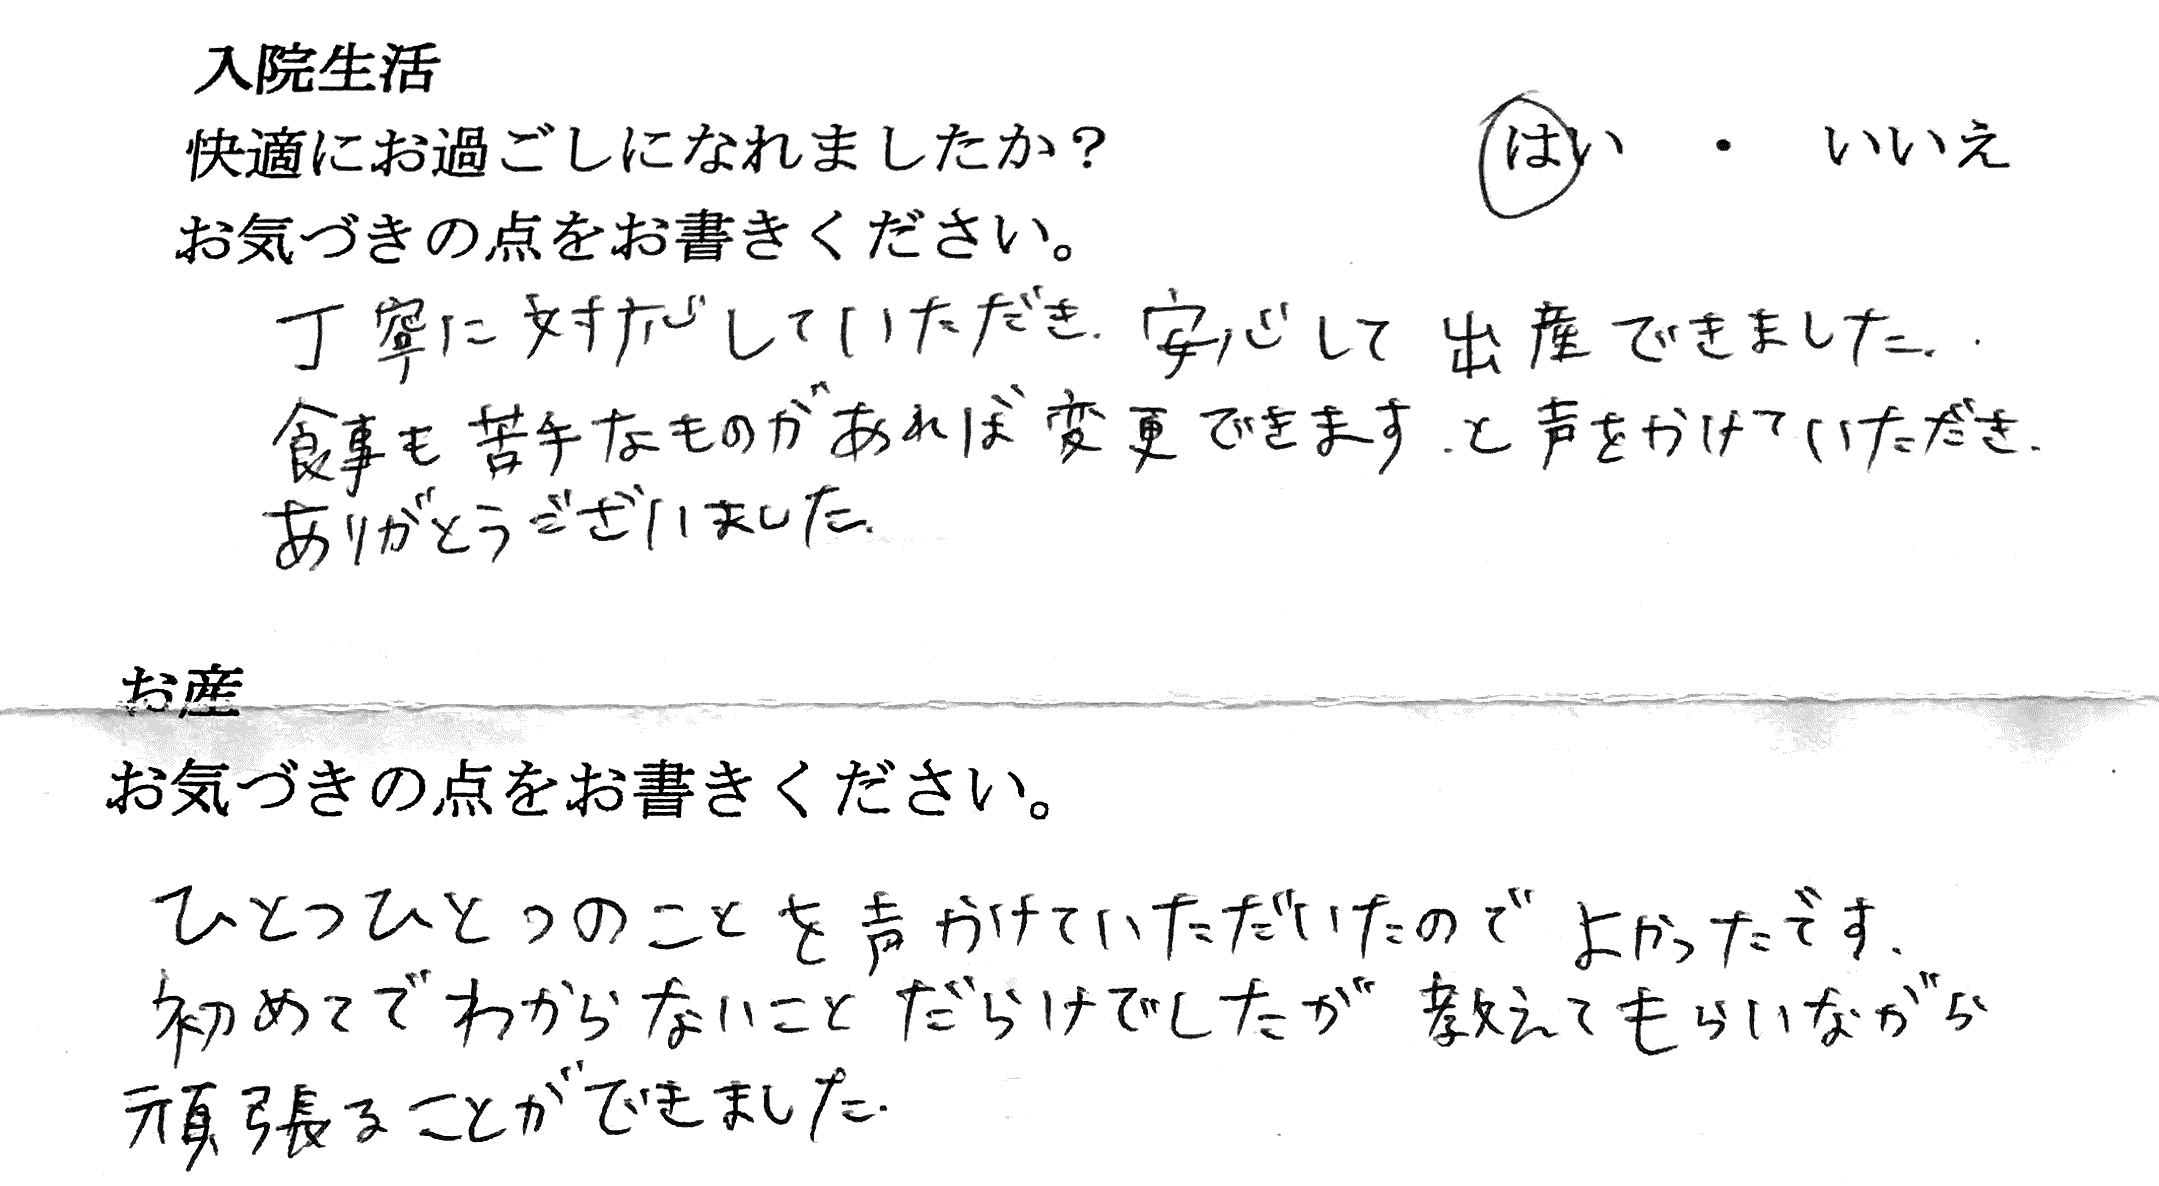 入院生活
快適にお過ごしになれましたか? はい ・ いいえ
お気づきの点をお書きください。
丁寧に対応していただき.安心して出産できました.
食事も苦手なものがあれば変更できます.と声をかけていただき.
ありがとうございました.
お産
お気づきの点をお書きください。
ひとつひとつのことを声かけていただいたのでよかったです.
初めてでわからないことだらけでしたが教えてもらいながら
頑張ることができました.